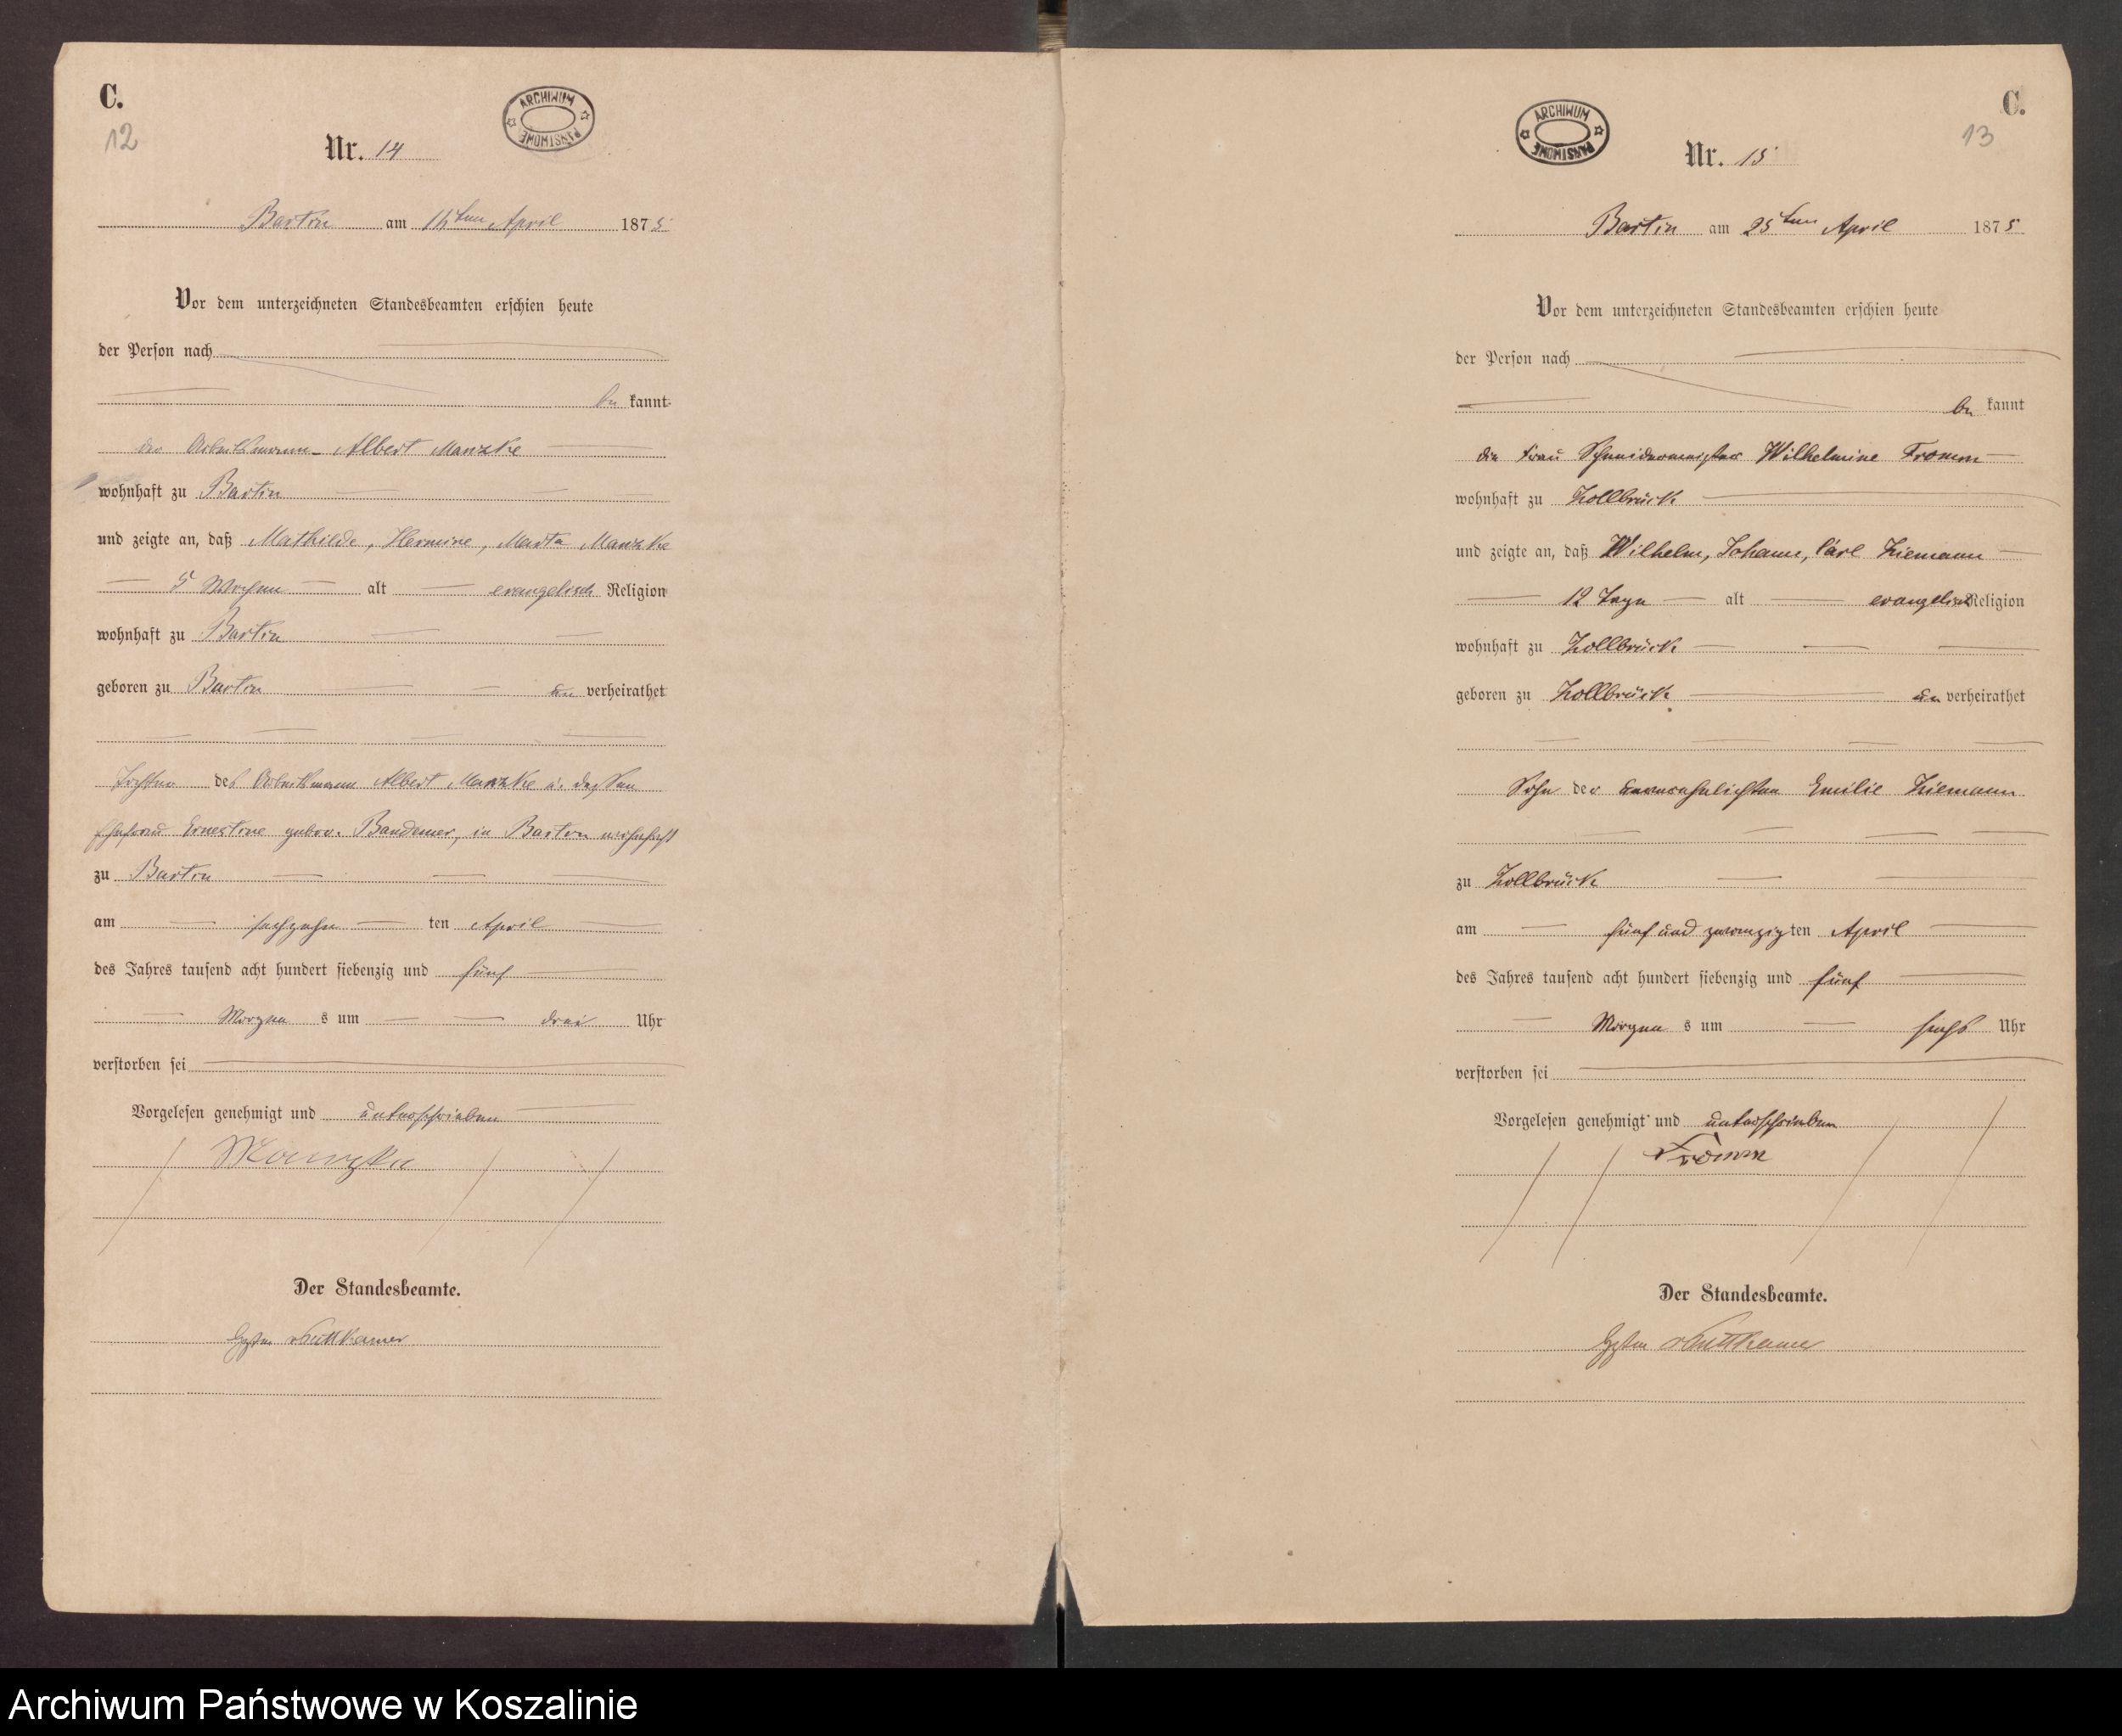 C.
12
ARCHIWUM PAŃSTWOWE
Nr. 14
Bartin am 16ten April 1875
Vor dem unterzeichneten Standesbeamten erschien heute
der Person nach
be kannt
der Arbeitsmann Albert Manzke
wohnhaft zu Bartin
und zeigte an, daß Mathilde, Hermine, Marta Manzke
5 Wochen alt evangelisch Religion
wohnhaft zu Bartin
geboren zu Bartin un verheirathet
Tochter des Arbeitsmann Albert Manzke u. dessen
Ehefrau Ernestine gebor. Bandemer, in Bartin wohnhaft
zu Bartin
am sechzehn ten April
des Jahres tausend acht hundert siebenzig und fünf
Morgen s um drei Uhr
verstorben sei
Vorgelesen genehmigt und unterschrieben
Manzke
Der Standesbeamte.
Puttkamer
C.
13
ARCHIWUM PAŃSTWOWE
Nr. 15
Bartin am 25ten April 1875
Vor dem unterzeichneten Standesbeamten erschien heute
der Person nach
be kannt
die Frau Schneidermeister Wilhelmine Fromm
wohnhaft zu Zollbrück
und zeigte an, daß Wilhelm, Johann, Carl Ziemann
12 Tage alt evangelisch Religion
wohnhaft zu Zollbrück
geboren zu Zollbrück un verheirathet
Sohn der unverehelichten Emilie Ziemann
zu Zollbrück
am fünf und zwanzigten April
des Jahres tausend acht hundert siebenzig und fünf
Morgen s um sechs Uhr
verstorben sei
Vorgelesen genehmigt und unterschrieben
Fromm
Der Standesbeamte.
Puttkamer
Archiwum Państwowe w Koszalinie